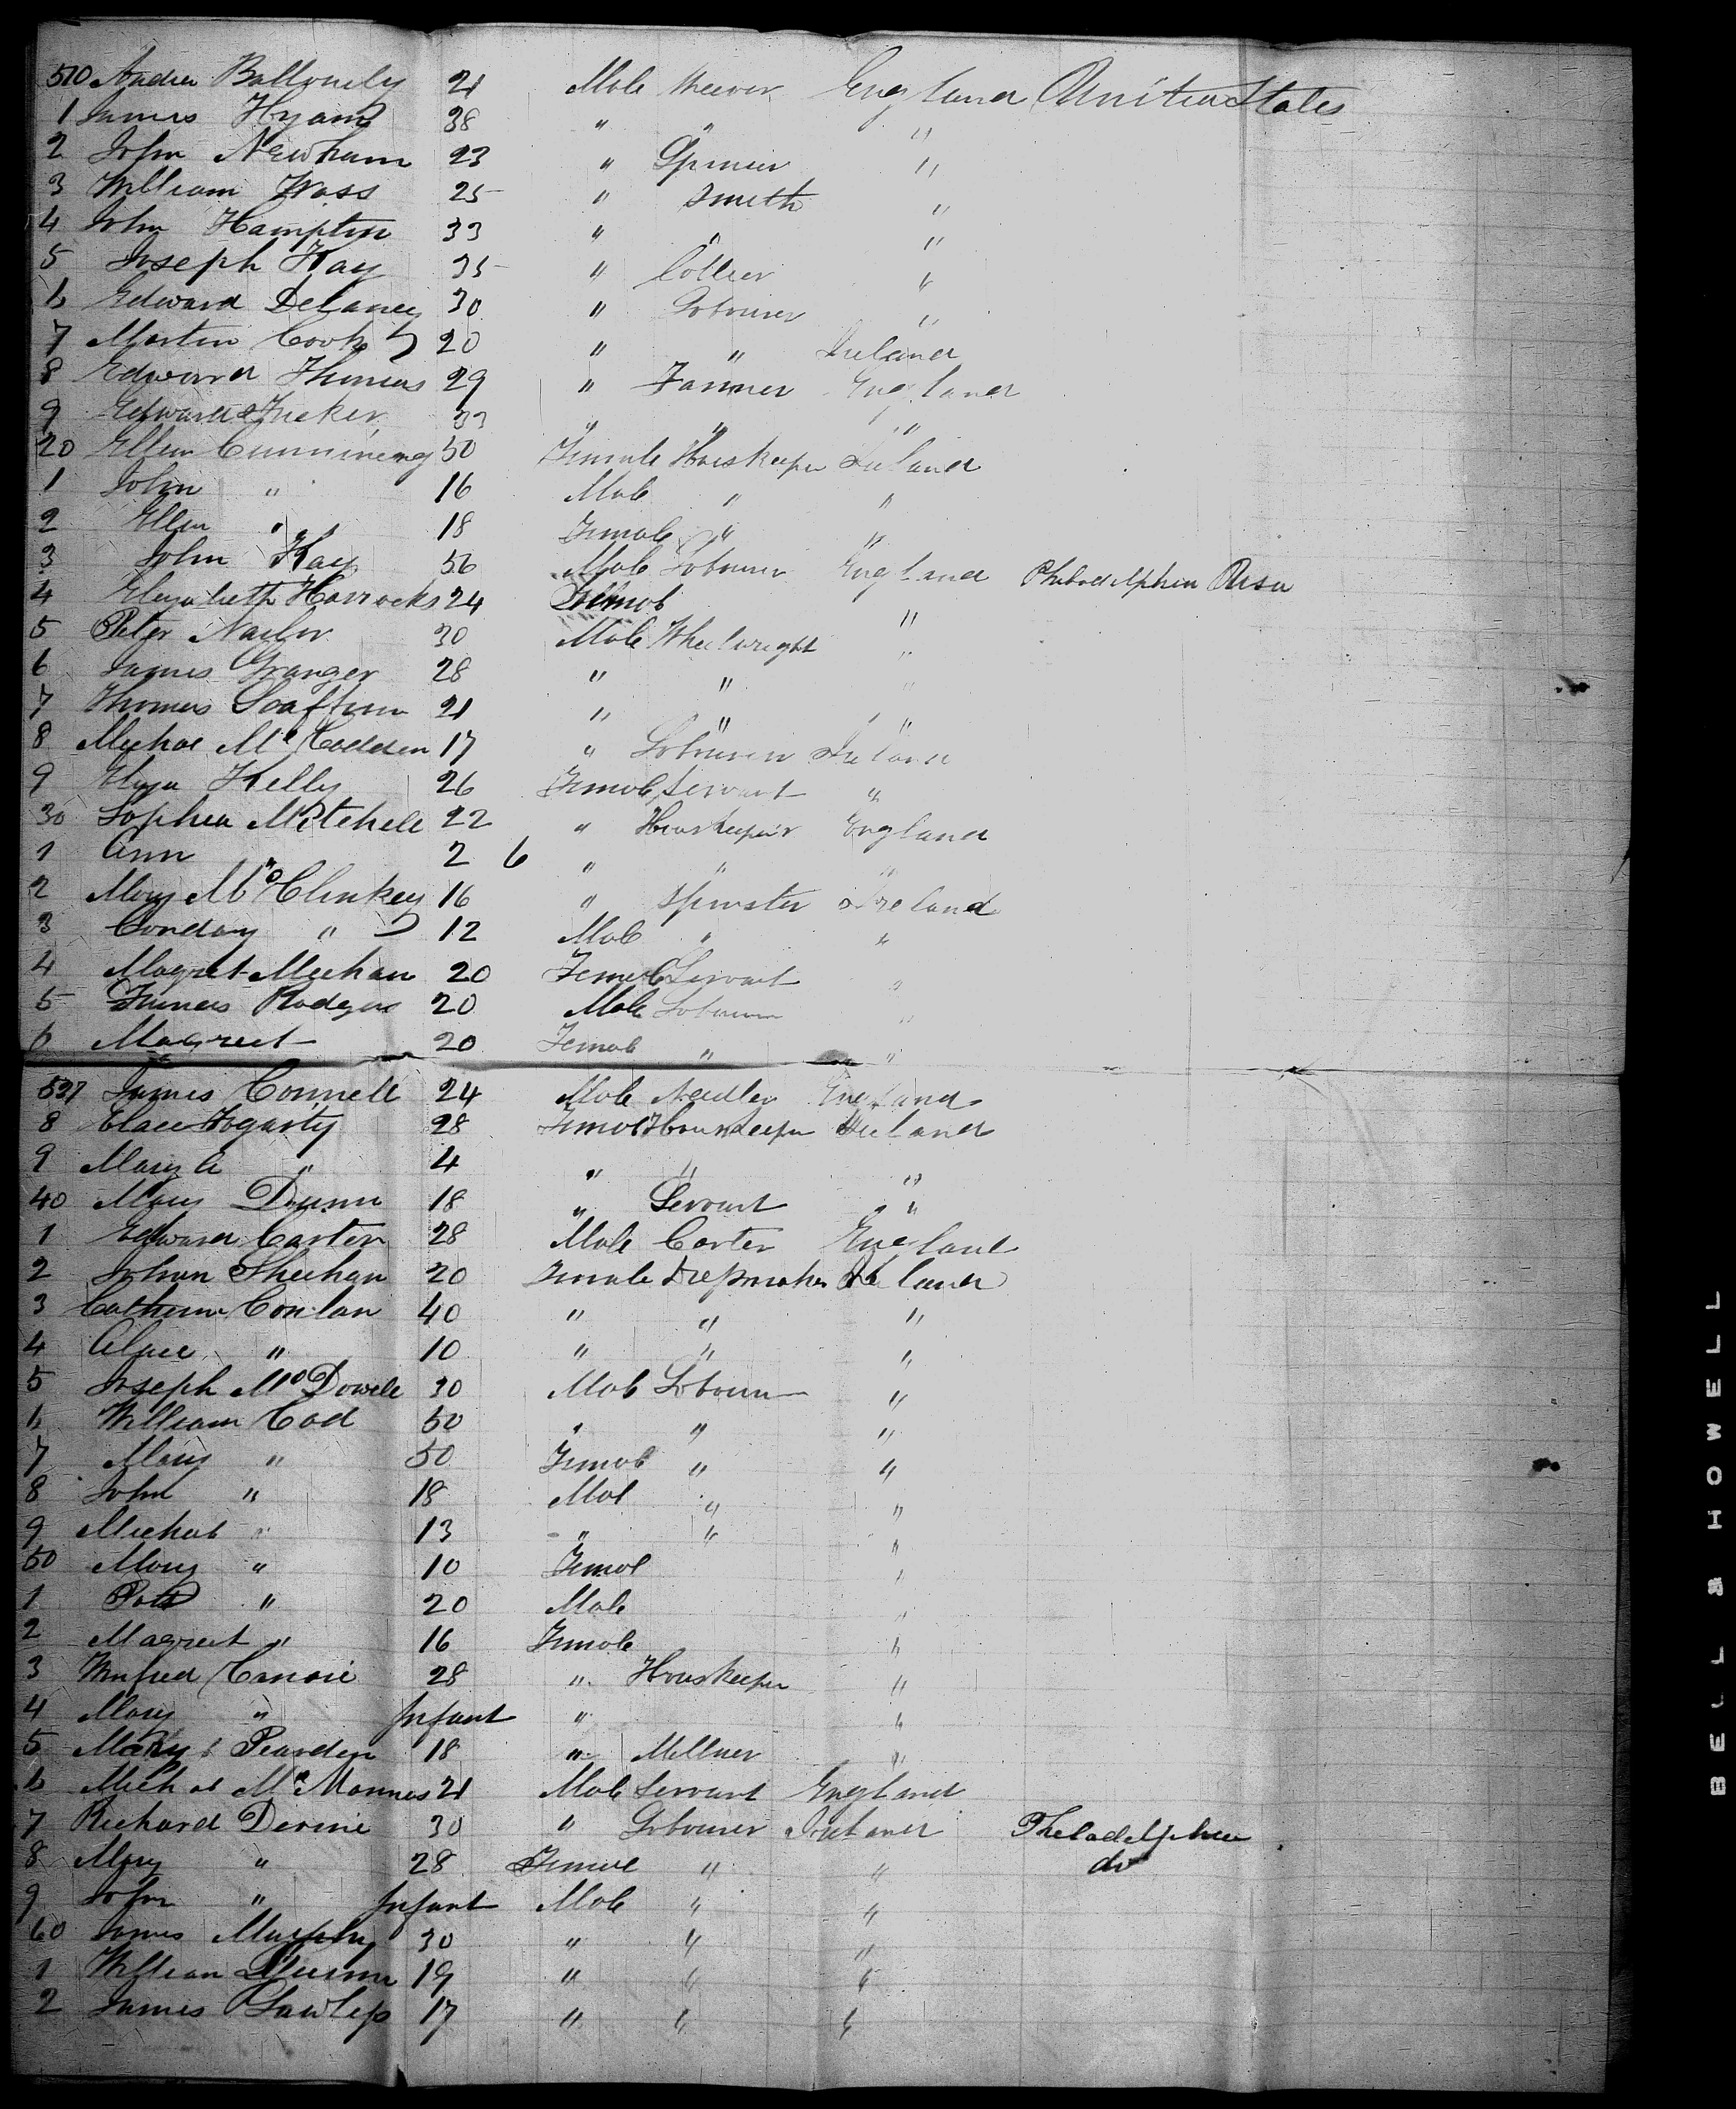 510 Andrew 21 Male Weever England United States
1 James Hyams 38 " " "
2 John Newham 23 " Spiner "
3 William Wass 25 " Smith "
4 John Hampton 33 " " "
5 Joseph Kay 35 " Collier "
6 Edward Delaney 30 " Labourer "
7 Martin Cook 20 " " Ireland
8 Edward Thomas 29 " Farmer England
9 Edward Tucker 33 " " "
20 Ellen 50 Female Houskeeper Ireland
1 John " 16 Male " "
2 Ellen " 18 Female " "
3 John Kay 56 Male Labourer England Philadelphia
4 Elizabeth Horrocks 24 Female "
5 Peter Naylor 30 Male Wheelwright "
6 James Granger 28 " " "
7 Thomas 21 " " "
8 Michael 17 " Labourer Ireland
9 Eliza Kelly 26 Female Servant "
30 Sophia Mitchell 22 " Houskeeper England
1 Ann " 2 6 " " "
2 Mary McClinkey 16 " Spinster Ireland
3 " 12 Male " "
4 Magret Meehan 20 Female Servant "
5 Rodgers 20 Male Labourer "
6 Magreet 20 Female " "
537 James Connell 24 Male Needler England
8 Fogarty 28 Female Houskeeper Ireland
9 Mary A " 4 " " "
40 Mary Dunn 18 " Servant "
1 Edward Carter 28 Male Carter England
2 Johan Sheehan 20 Female Dressmaker Ireland
3 Catherine Conlan 40 " " "
4 Alice " 10 " " "
5 Joseph McDowell 30 Male Labourer "
6 William Cod 50 " " "
7 Mary " 50 Female " "
8 John " 18 Male " "
9 Michael " 13 " " "
50 Mary " 10 Female "
1 Pat " 20 Male "
2 Magreet " 16 Female "
3 Winfred 28 " Houskeeper "
4 Mary " Infant " "
5 Mary Pearden 18 " Millner "
6 Michael McMannus 21 Male Servant England
7 Richard Devine 30 " Labourer Ireland Philadelphia
8 Mary " 28 Female " " do
9 John " Infant Male " "
60 James Murphy 30 " " "
1 William 19 " " "
2 James Lawless 17 " " "
BELL & HOWELL